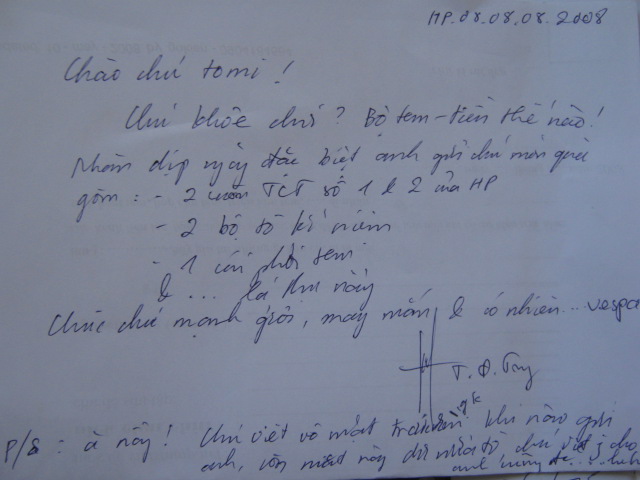 HP. 08.08.08.2008
Chào chú tomi!
Chú khỏe chứ? Bộ tem-tiền thế nào!
Nhân dịp ngày đặc biệt anh gửi chú món quà
gồm: - 2 cuốn TCT số 1 & 2 của HP
- 2 bộ tờ kỉ niệm
- 1 cái phôi tem
& ... lá thư này
Chúc chú mạnh giỏi, may mắn & có nhiên... vespa
T.Đ.
P/S: à này! Chú viết vô mặt khi nào gửi
anh, còn mặt này chú viết gì cho
anh